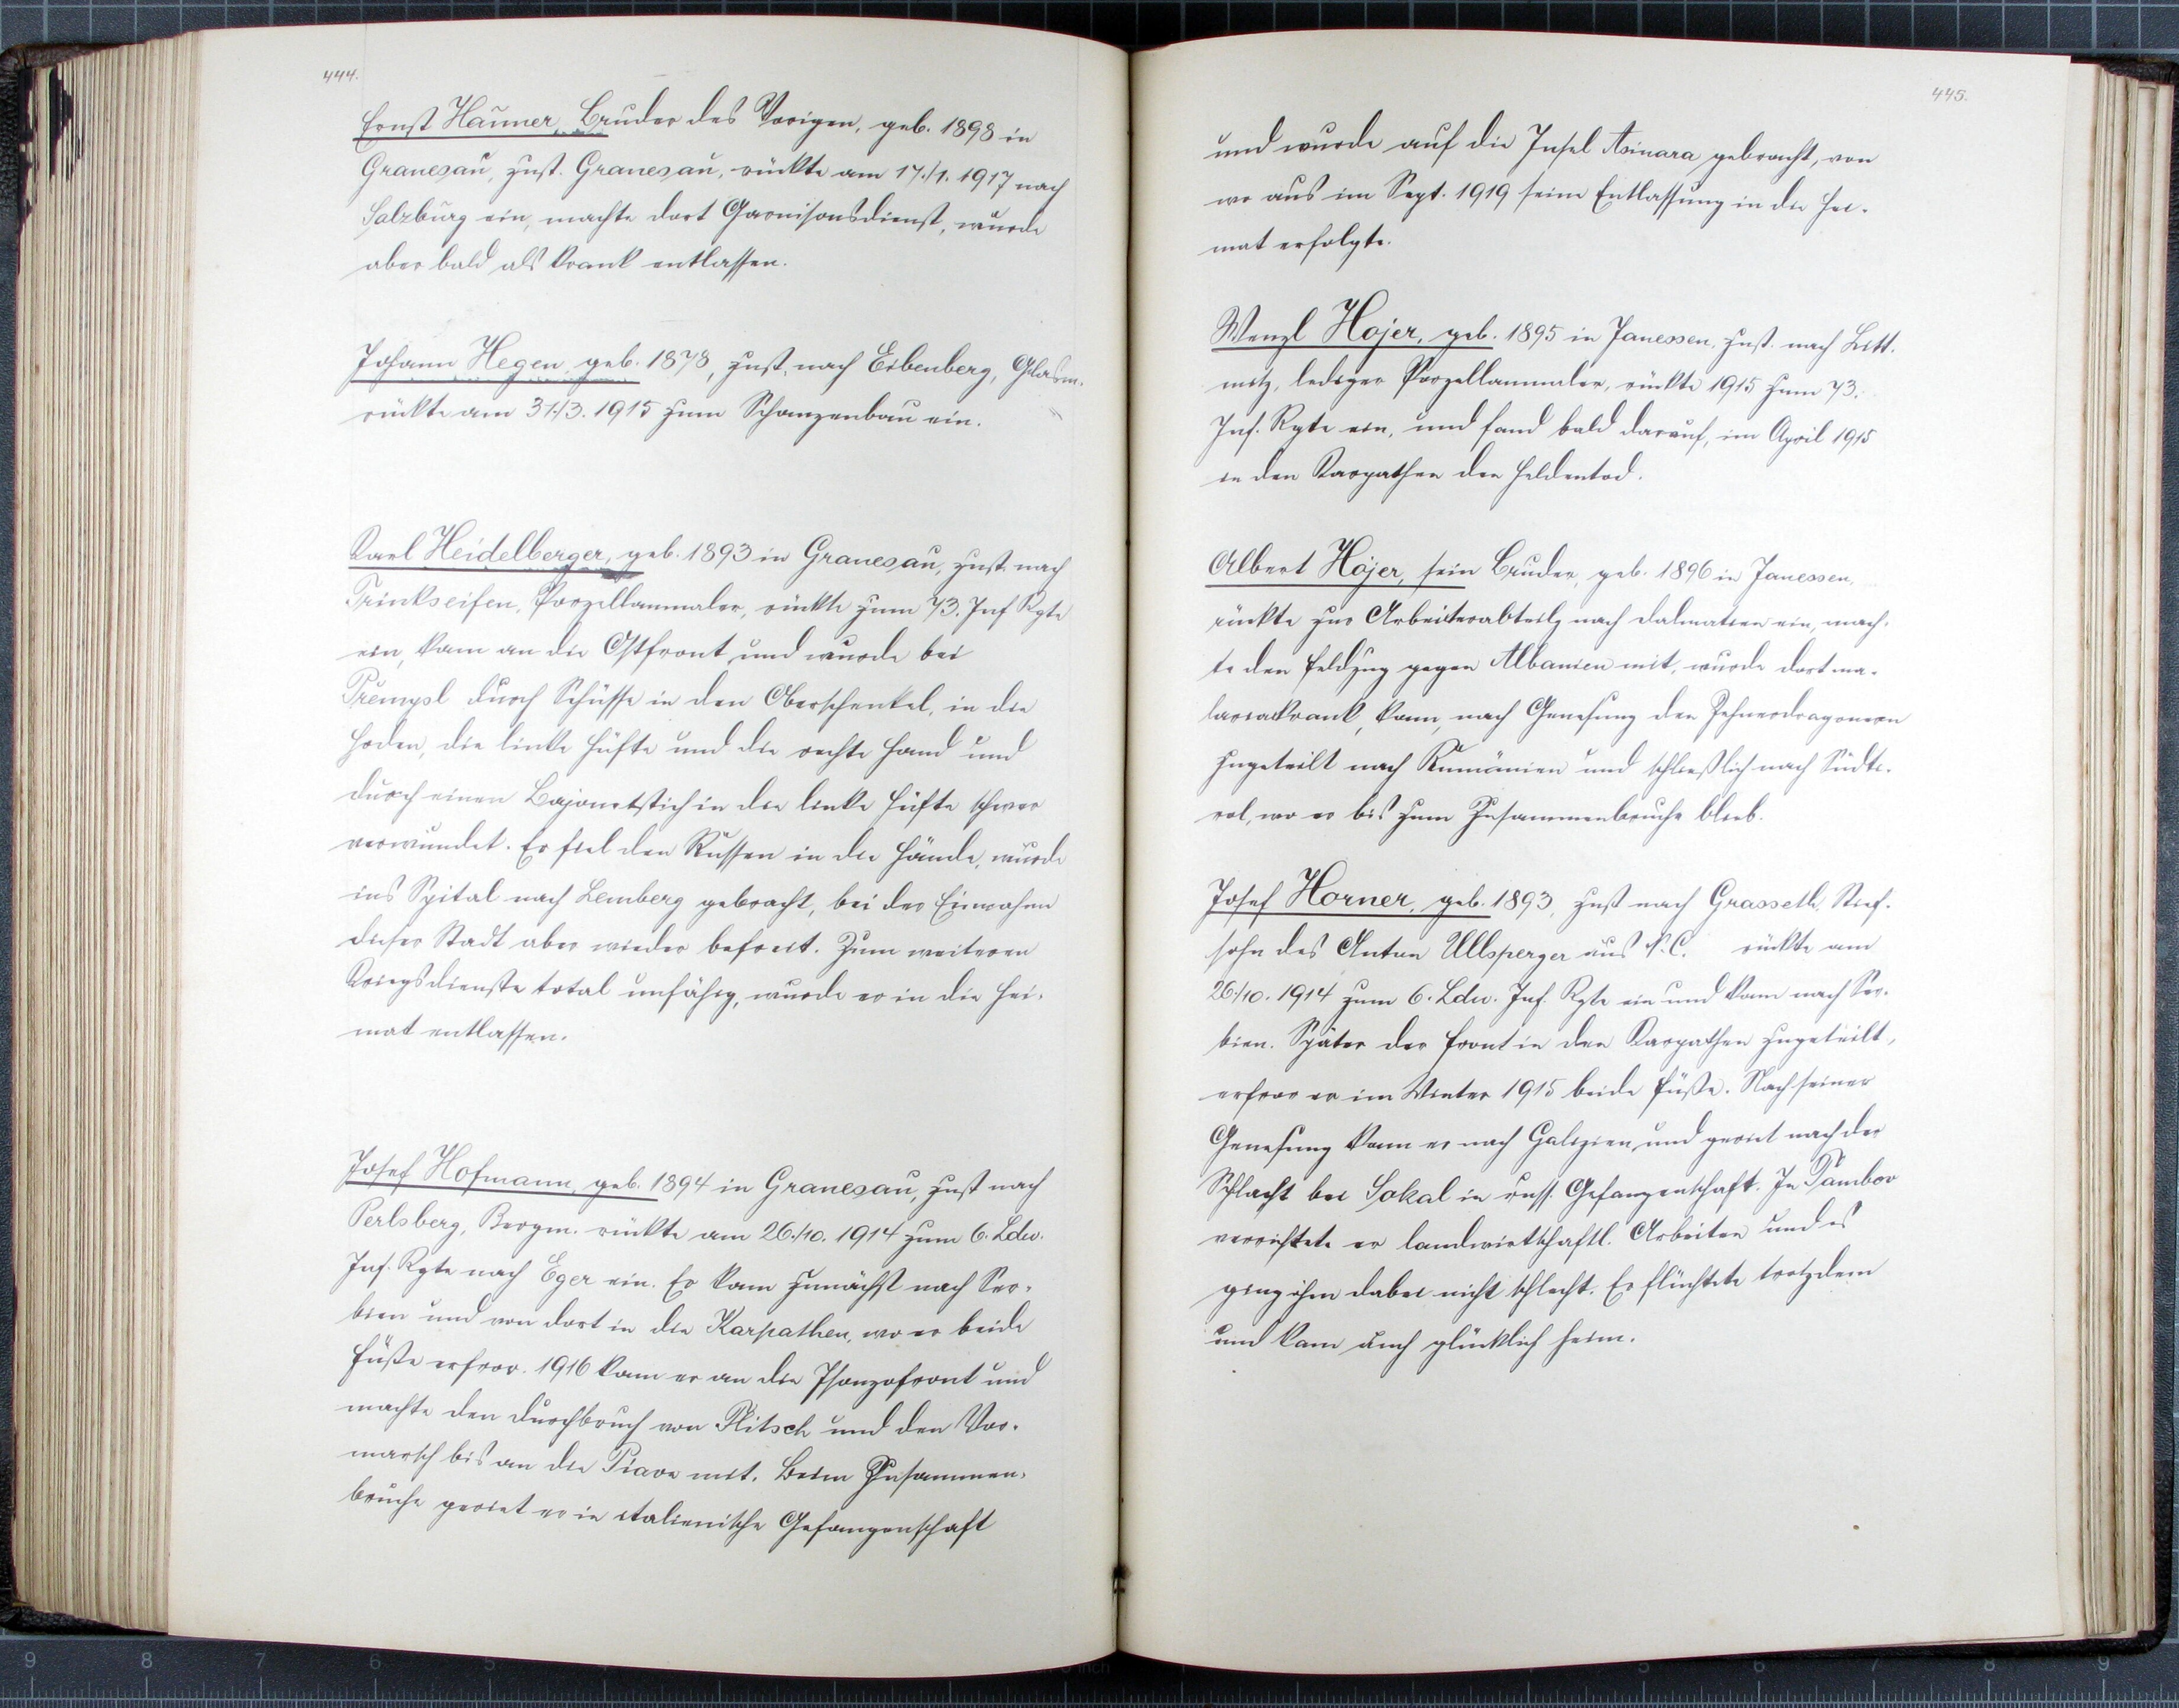 444.
Ernst Hanner, Bruder des Vorigen, geb. 1898 in
Granesau, zust. Granesau, rückte am 17./1. 1917 nach
Salzburg ein, machte dort Garnisonsdienst, wurde
aber bald als krank entlassen.
Johann Hegen, geb. 1878, zust. nach Eibenberg, Glasm.
rückte am 31./3. 1915 zum Schanzenbau ein.
Karl Heidelberger, geb. 1893 in Granesau, zust. nach
Trinkseifen, Porzellanmaler, rückte zum 73. Inf. Rgte
ein, kam an die Ostfront und wurde bei
Přemysl durch Schüsse in den Oberschenkel, in die
Hoden, die linke Hüfte und die rechte Hand und
durch einen Bajonetstich in die linke Hüfte schwer
verwundet. Er fiel den Russen in die Hände, wurde
ins Spital nach Lemberg gebracht, bei der Einnahme
dieser Stadt aber wieder befreit. Zum weiteren
Kriegsdienste total unfähig, wurde er in die Hei-
mat entlassen.
Josef Hofmann, geb. 1894 in Granesau, zust. nach
Perlsberg, Bergm. rückte am 26./10. 1914 zum 6. Ldw.
Inf. Rgte nach Eger ein. Er kam zunächst nach Ser-
bien und von dort in die Karpathen, wo er beide
Füße erfror. 1916 kam er an die Isonzofront und
machte den Durchbruch von Flitsch und den Vor-
marsch bis an die Piave mit. Beim Zusammen-
bruche geriet er in italienische Gefangenschaft
445.
und wurde auf die Insel Asinara gebracht, von
wo aus im Sept. 1919 seine Entlassung in die Hei-
mat erfolgte.
Wenzl Hojer, geb. 1895 in Janessen, zust. nach Litt-
mitz, lediger Porzellanmaler, rückte 1915 zum 73.
Inf. Rgte ein, und fand bald darauf, im April 1915
in den Karpathen den Heldentod.
Albert Hojer, sein Bruder, geb. 1896 in Janessen,
rückte zur Arbeiterabteilg nach Dalmatien ein, mach-
te den Feldzug gegen Albanien mit, wurde dort ma-
lariakrank, kam, nach Genesung den Zehnerdragonern
zugeteilt nach Rumänien und schließlich nach Südti-
rol, wo er bis zum Zusammenbruche blieb.
Josef Horner, geb. 1893, zust. nach Grasseth, Stief-
sohn des Anton Ullsperger aus N. C. rückte am
26./10. 1914 zum 6. Ldw. Inf. Rgte ein und kam nach Ser-
bien. Später der Front in den Karpathen zugeteilt,
erfror er im Winter 1915 beide Füße. Nach seiner
Genesung kam er nach Galizien und geriet nach der
Schlacht bei Sokal in russ. Gefangenschaft. In Tambov
verrichtete er landwirtschaftl. Arbeiten und es
ging ihm dabei nicht schlecht. Er flüchtete trotzdem
und kam auch glücklich heim.